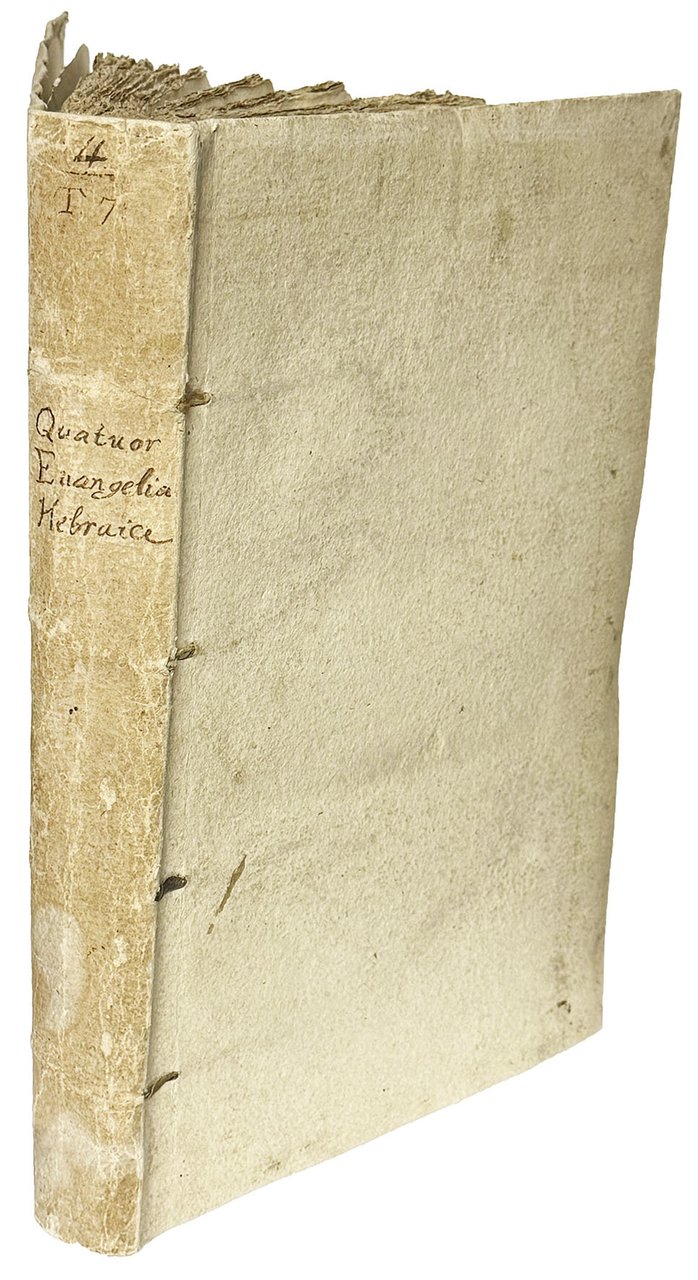 4
T 7
Quatuor
Euangelia
Hebraice